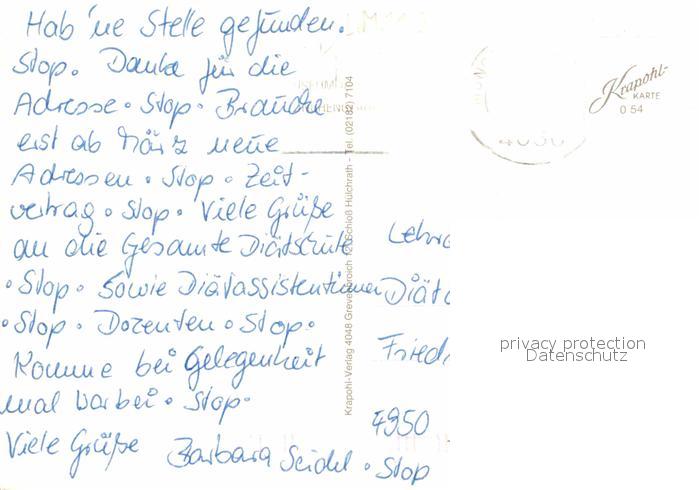 Hab 'ne Stelle gefunden.
Stop. Danke für die
Adresse. Stop. Brauche
erst ab März neue
Adressen. Stop. Zeit-
vertrag. Stop. Viele Grüße
an die Gesamte Diätschule
. Stop. Sowie Diätassistentinnen
. Stop. Dozenten. Stop.
Komme bei Gelegenheit
mal vorbei. Stop.
Viele Grüße Barbara Seidel. Stop
Krapohl-Verlag 4048 Grevenbroich 12, Schloß Hülchrath - Tel. (02182) 7104
Krapohl-
KARTE
O 54
Diät
Fried
4950
privacy protection
Datenschutz